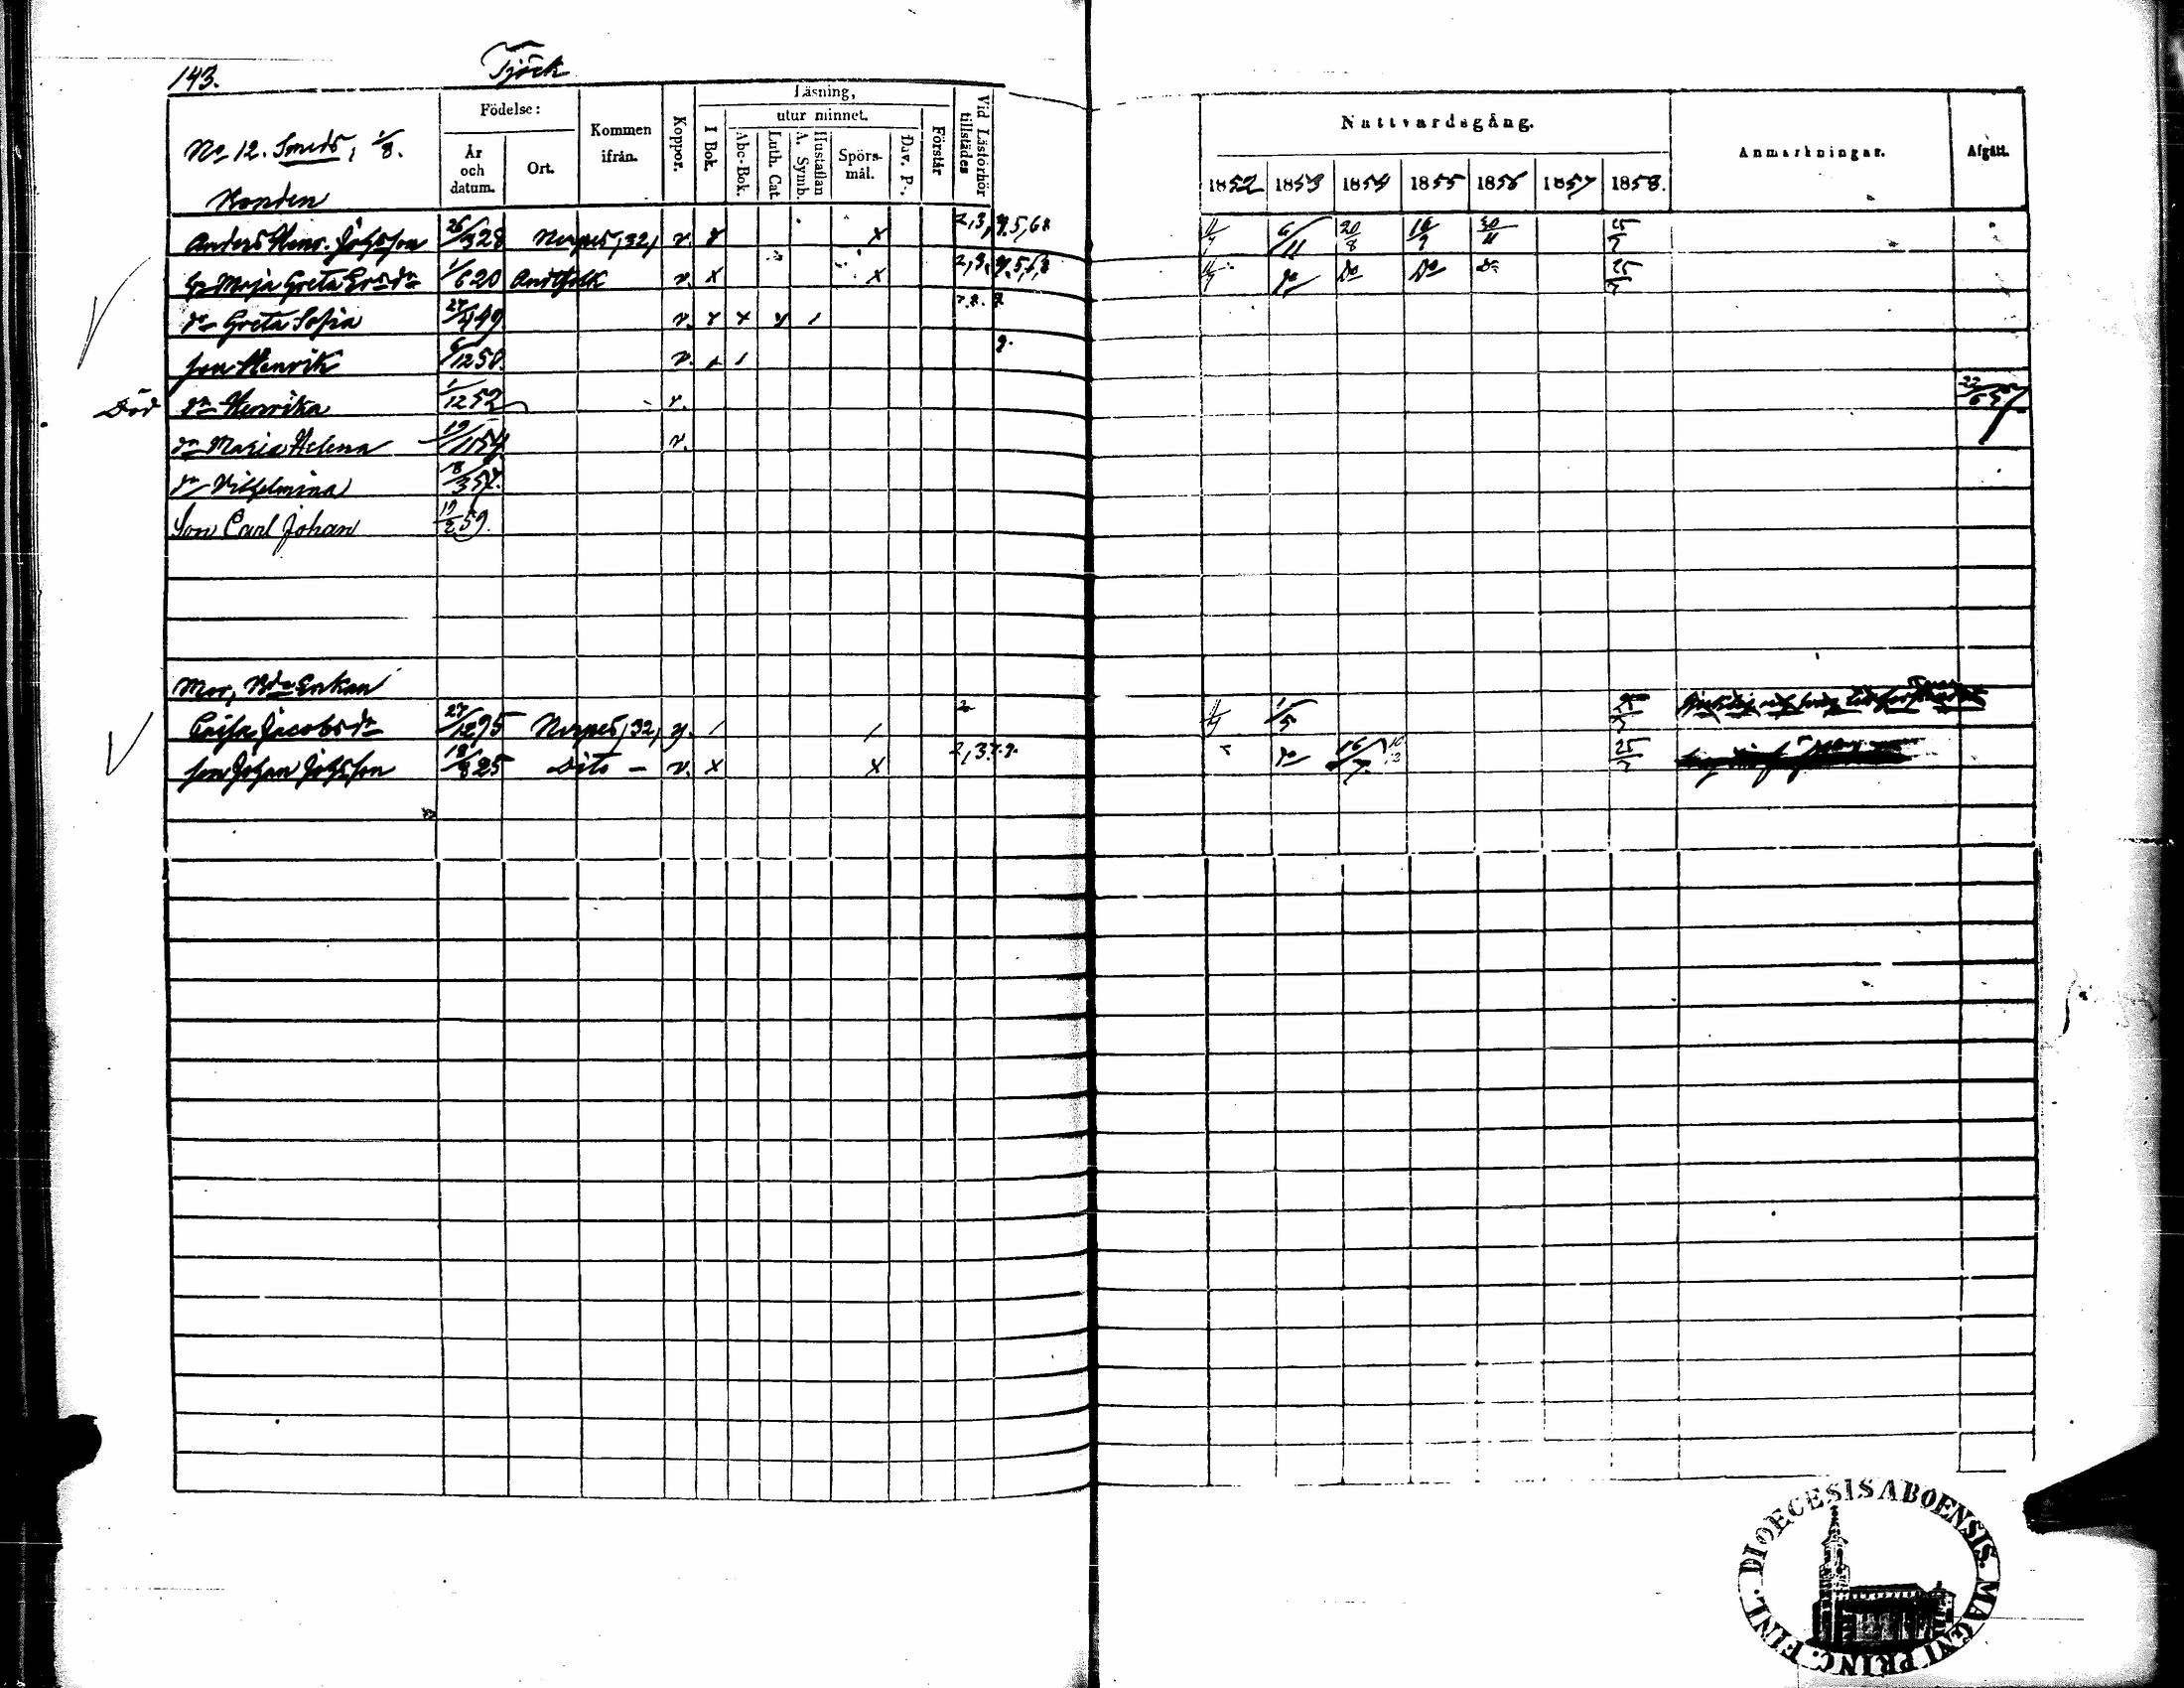 143. Tjöck
No 12. Smeds, 1/8.
Födelse:
Kommen ifrån.
Koppor.
Läsning,
I Bok.
utur minnet.
Abc-Bok.
Luth. Cat.
Hustaflan A. Symb.
Spörsmål.
Dav. P.
Förstår
Vid Läsförhör tillstädes
Nattvardsgång.
Anmärkningar.
Afgått.
År och datum.
Ort.
1852 1853 1854 1855 1856 1857 1858.
Bonden
Anders Henr. Johsson 26/3 28 Nerpes, 32, v. x x 2,3, 4,5,6 8 11/4 6/11 20/8 16/9 30/11 25/7
Maja Greta 1/6 20 v. x x 2,3, 4,5,6,8 11/4 do Do Do Do 25/7
dr Greta Sofia 27/4 49 v. x x
son Henrik 6/12 50. v.
Död dr Henrika 1/12 52 v. 22/6 57
dr Maria Helena 19/11 54 v.
dr Vilhelmina 18/3 57.
Son Carl Johan 19/2 59.
Mor, Enkan
Caisa Jacobsdr 27/12 95 Nerpes, 32, 2 1/5 25/7
son Johan Johsson 18/8 25 Dito - v. x x 2,3 do 16/7 25/7
DIOECESIS ABOENSIS. MAGNI PRINC. FINL.